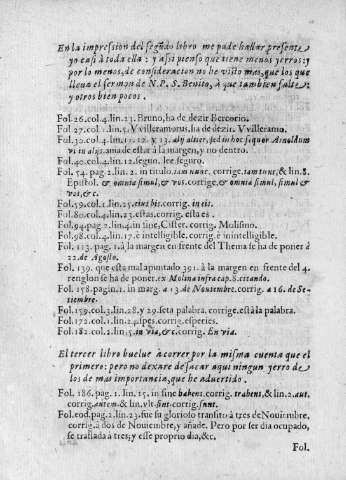 En la impression del segũdo libro me pude hallar presente
yo casi à toda ella: y assi pienso que tiene menos yerros: y
por lo menos, de consideracion no he visto mas, que los que
lleua el sermon de N.P.S. Benito, à que tambien falte:
y otros bien pocos.
Fol.26.col.4.lin.23. Bruno, ha de dezir Bercorio.
Fol.27.col.1.lin.5. Vvilleramorus, ha de dezir. Vvilleramo.
Fol.30.col.4.lin.11.12. y 13. alij aliter, sed in hoc sequor Arnoldum
vi in alijs. auia de estar à la margen, y no dentro.
Fol.40.col.4.lin.12.segun. lee seguro.
Fol. 54. pag.2. lin.2. in titulo. tam nunc, corrige. tam tunc, & lin.8.
Epistol. & omnia simul, & vos. corrige, & omnia simul, simul, &
vos, & c.
Fol.59.col.1.lin.25. eius his. corrig. in eis.
Fol.80.col.4.lin.23. estas. corrig. esta es.
Fol.94.pag.2.lin.4.in fine, Cister. corrig. Molismo.
Fol.98.col.4.lin.17. è intelligible. corrig. è inintelligible.
Fol. 113. pag. 1. à la margen en frente del Thema se ha de poner à
22. de Agosto.
Fol. 139. que esta mal apuntado 391. à la margen en frente del 4.
renglon se ha de poner. ex Molina infra cap.8. citando.
Fol.158.pagin.1. in marg. a 13. de Nouiembre. corrig. a 16. de Se-
tiembre.
Fol.159.col.3.lin.28. y 29. seta palabra. corrige. està la palabra.
Fol.172.col.1.lin.24. spes. corrig. species.
Fol.182.col.2.lin.5. in via, & c. corrig. En via.
El tercer libro buelue à correr por la misma cuenta que el
primero: pero no dexare de sacar aqui ningun yerro de
los de mas importancia, que he aduertido.
Fol. 186. pag. 1. lin. 15. in fine habens. corrig. trabens, & lin.2. aut,
corrig. autem. & lin. vlt. sint. corrig. sunt.
Fol.eod.pag.2.lin.23. fue su glorioso transito à tres de Nouiembre,
corrig. a dos de Nouiembre, y añade. Pero por ser dia ocupado,
se traslada à tres; y esse proprio dia, &c.
Fol.